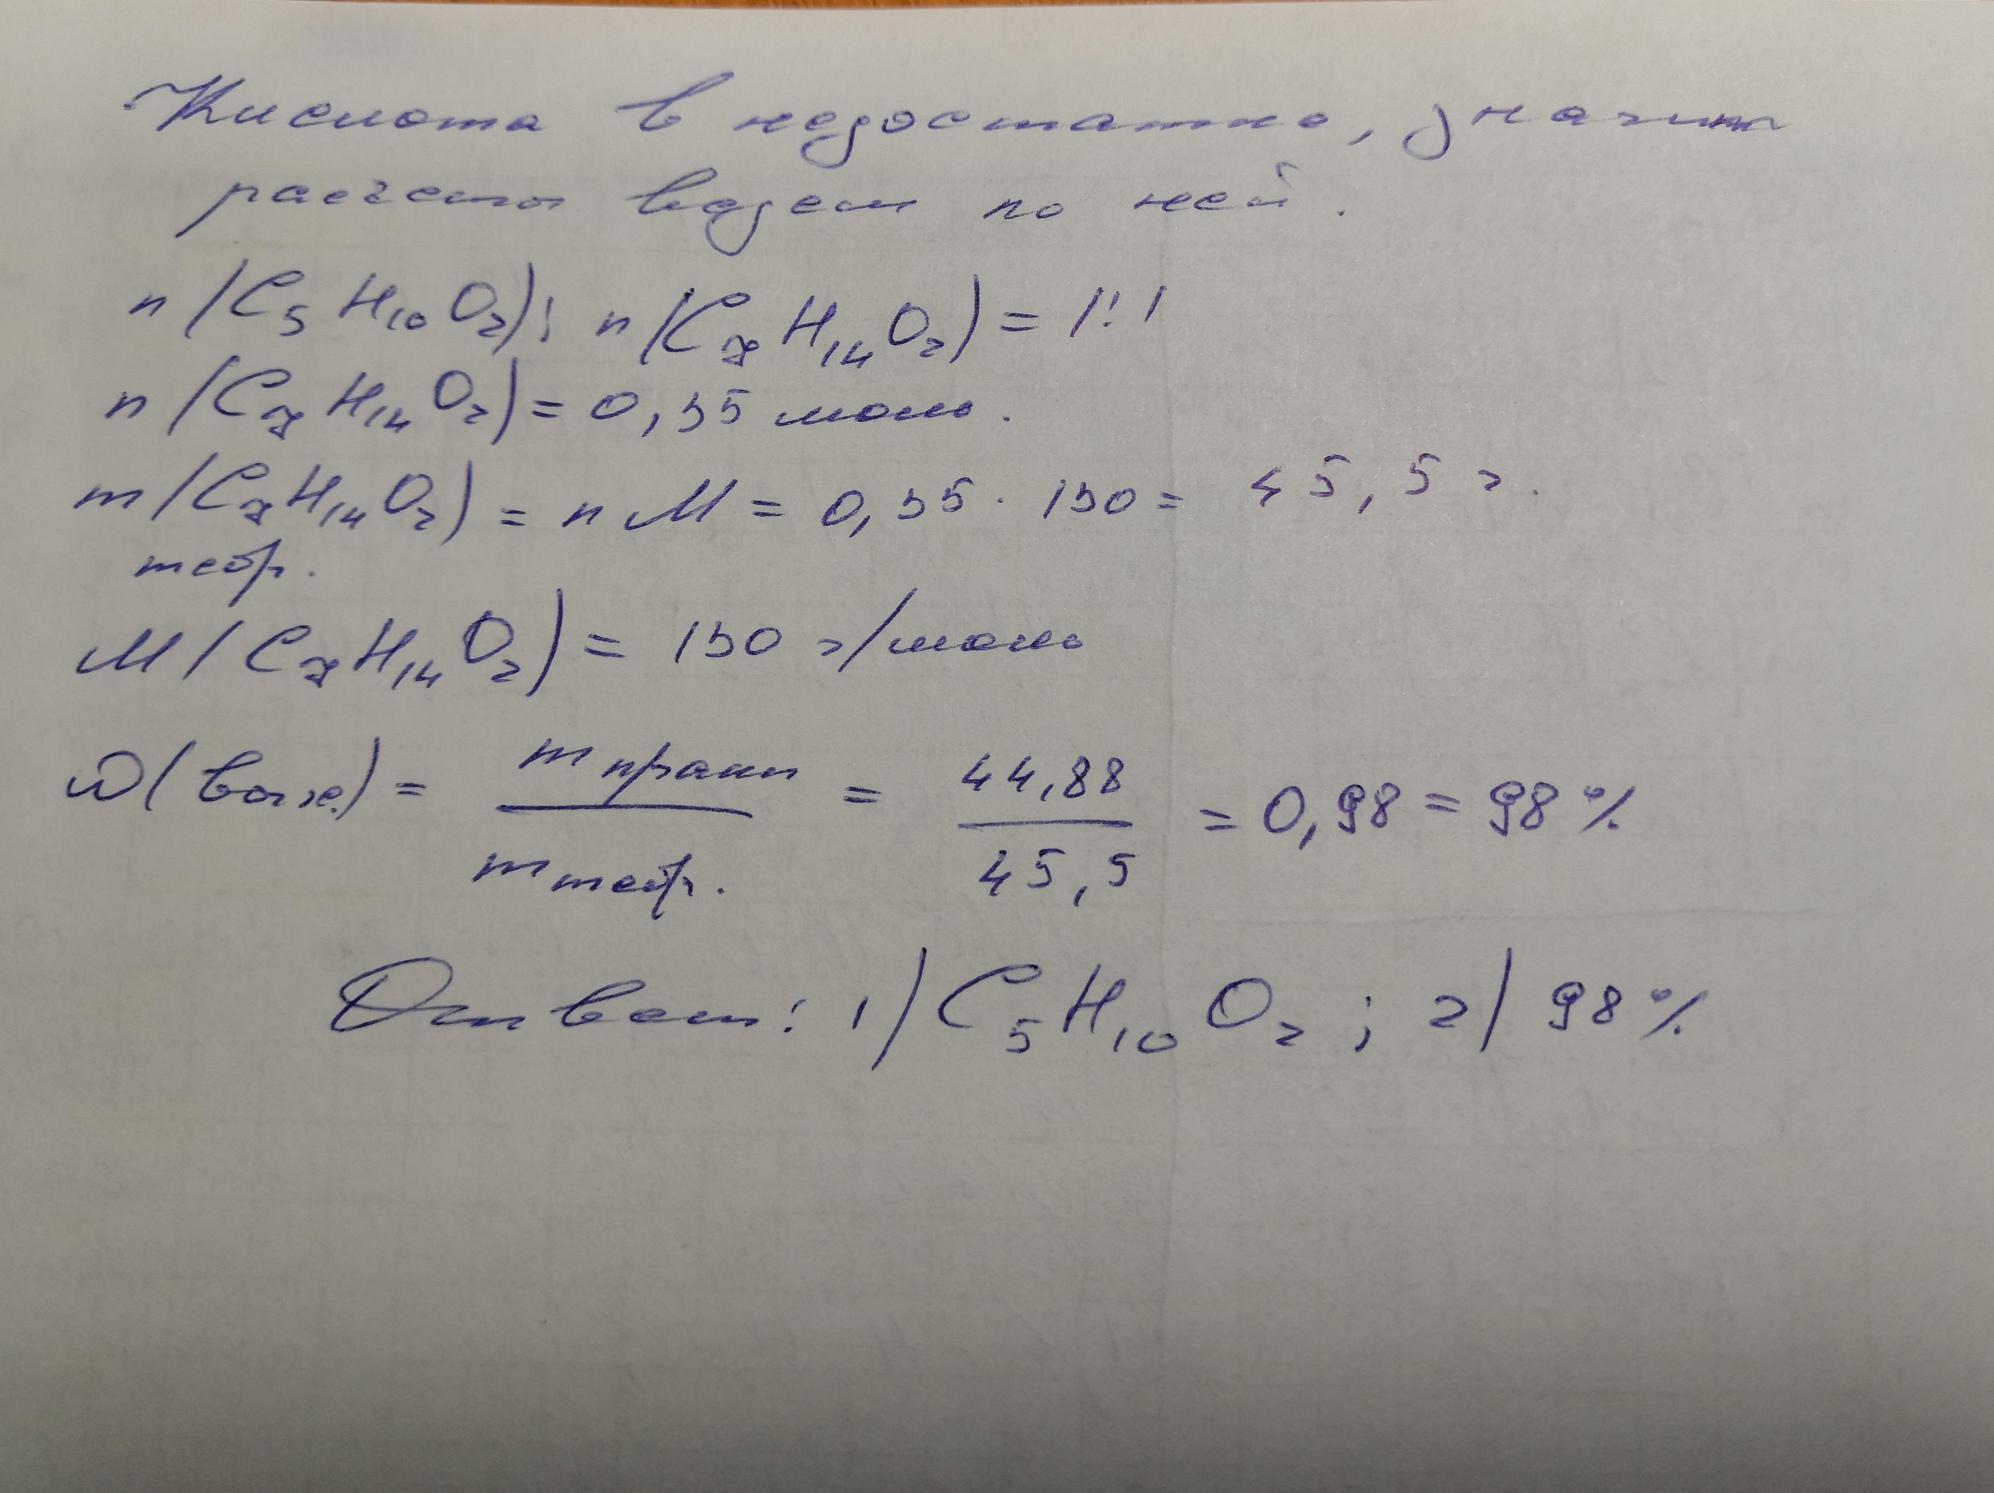 Кислота в недостатке, значит
расчеты ведем по ней.
n(C₅H₁₀O₂): n(C₇H₁₄O₂) = 1:1
n(C₇H₁₄O₂) = 0,35 моль.
m(C₇H₁₄O₂) = n M = 0,35 · 130 = 45,5 г.
теор.
M(C₇H₁₄O₂) = 130 г/моль
ω(вых.) = m практ / m теор. = 44,88 / 45,5 = 0,98 = 98 %
Ответ: 1) C₅H₁₀O₂; 2) 98 %